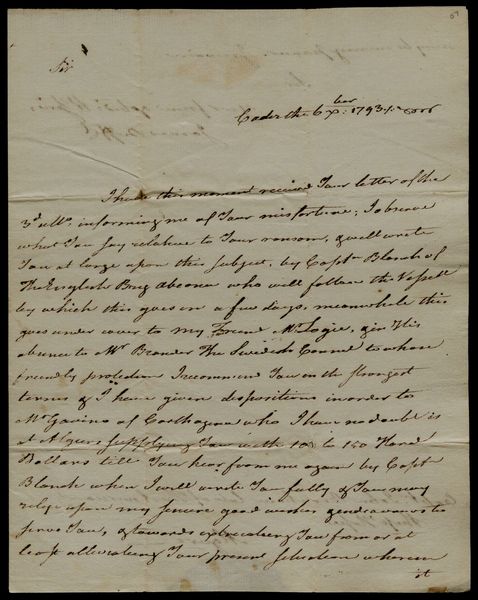 Sir
Cadiz the 6 xber: 1793.
I have this moment received Your letter of the
3d ullo. informing me of Your misfortune; I observe
what You say relative to Your ransom, & will write
You at large upon this subject, by Captn Blanch of
The English Brig who will follow the Vessell
by which this goes in a few days, meanwhile this
goes under cover to my Friend Mr Logie, & in His
absence to Mr Brander The Swedish Consul to whose
friendly protection I recommend You in the strongest
terms & I have given dispositions in order to
Mr Gavino of Carthagena who I have no doubt is
at Algiers supplying You with 100 to 150 Hard
Dollars till You hear from me again by Captn
Blanch when I will write You fully & You may
relye upon my sincere good wishes & endeavours to
serve You, & towards extricating You from or at
least alleviating Your present situation wherein
it